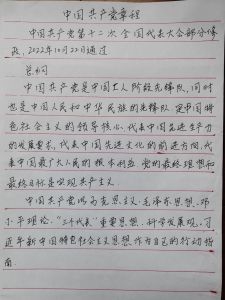 中国共产党章程
中国共产党第二十次全国代表大会部分修
改，2022年10月22日通过
总纲
中国共产党是中国工人阶级先锋队，同时
也是中国人民和中华民族的先锋队，是中国特
色社会主义的领导核心，代表中国先进生产力
的发展要求，代表中国先进文化的前进方向，代
表中国最广大人民的根本利益。党的最高理想和
最终目标是实现共产主义。
中国共产党以马克思主义、毛泽东思想、邓
小平理论、“三个代表”重要思想、科学发展观、习
近平新中国特色社会主义思想作为自己的行动指
南。